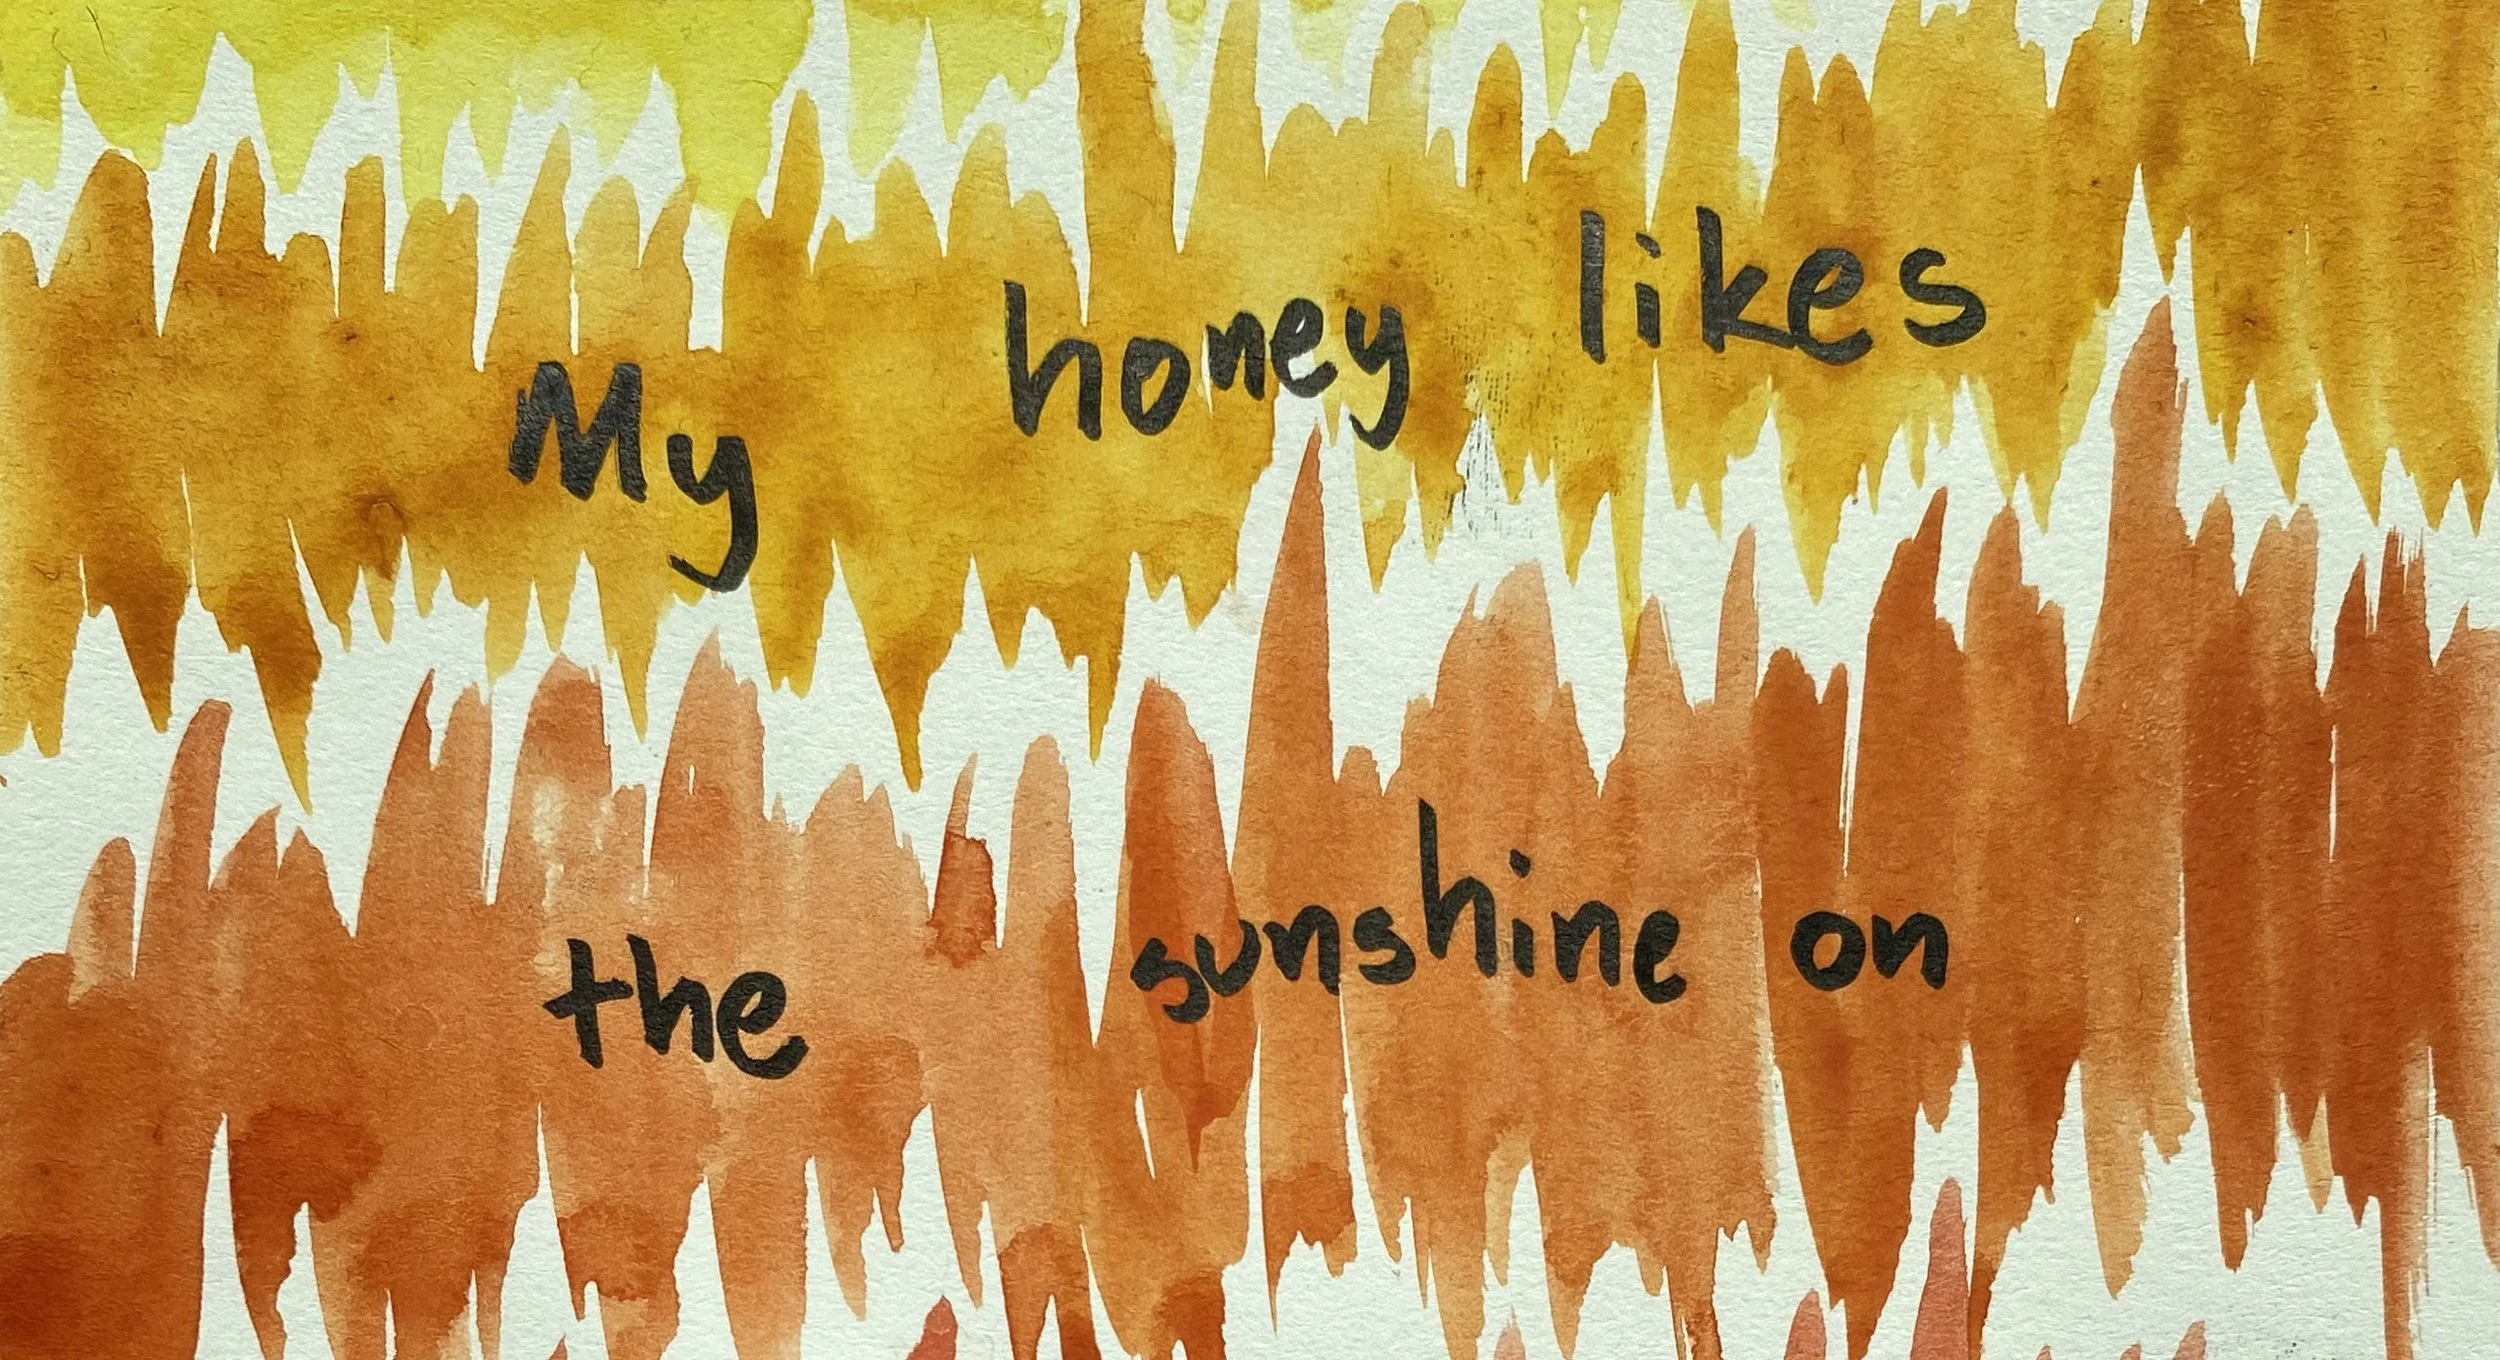 My honey likes
the sunshine on